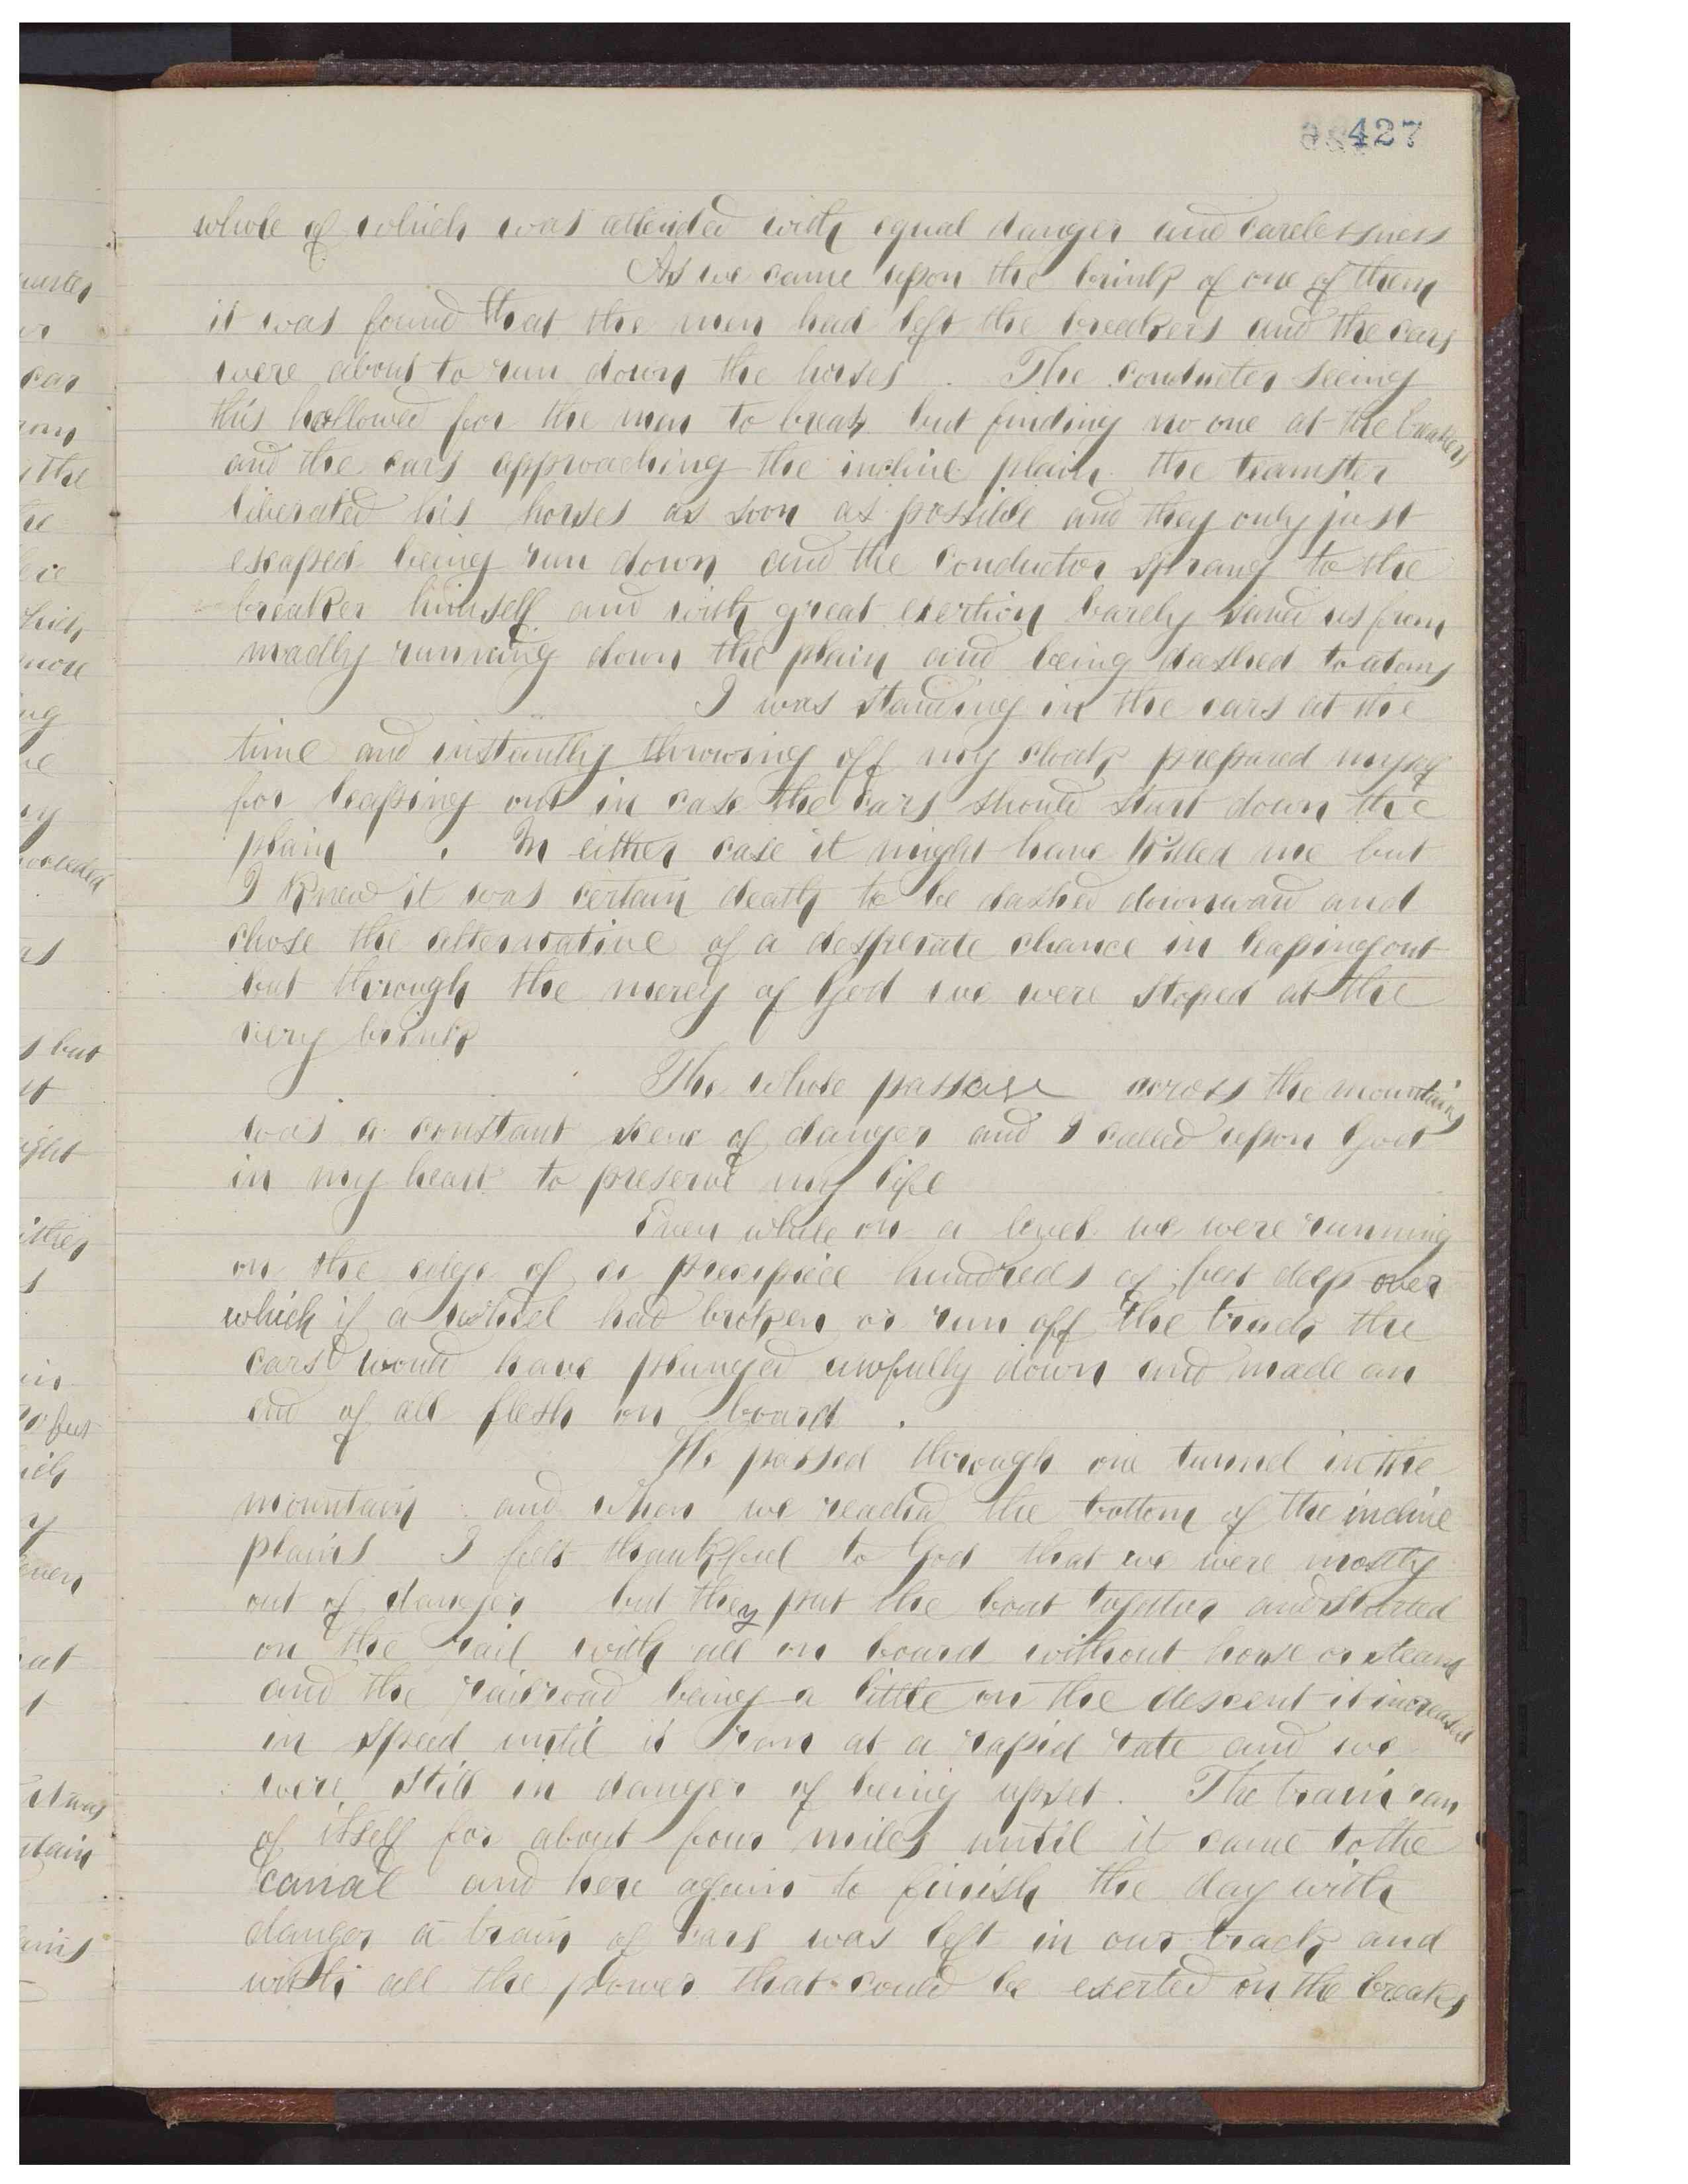 427
whole of which was attended with equal danger and carelessness
As we came upon the brink of one of them
it was found that the men had left the breakers and the cars
were about to run down the horses . The conducter seeing
this hollowed for the men to break but finding no one at the breakers
and the cars approaching the incline plain the teamster
liberated his horses as soon as possible and they only just
escaped being run down and the conductor sprang to the
breaker himself and with great exertion barely saved us from
madly running down the plain and being dashed to atoms
I was standing in the cars at the
time and instantly throwing off my cloak prepared myself
for leaping out in case the cars should start down the
plain . In either case it might have killed me but
I knew it was certain death to be dashed downward and
chose the alternative of a desperate chance in leaping out
but through the mercy of God we were stoped at the
very brink
The whole passage across the mountains
was a constant scene of danger and I called upon God
in my heart to preserve my life
Even while on a level we were running
on the edge of a precipice hundreds of feet deep over
which if a wheel had broken or run off the track the
cars would have plunged awfully down and made an
end of all flesh on board .
We passed through one tunnel in the
mountain and when we reached the bottom of the incline
plains I felt thankful to God that we were mostly
out of danger but they put the boat together and started
on the rail with all on board without horse or steam
and the railroad being a little on the descent it increased
in speed until it ran at a rapid rate and we
were still in danger of being upset . The train ran
of itself for about four miles until it came to the
canal and here again to finish the day with
danger a train of cars was left in our track and
with all the power that could be exerted on the breaks